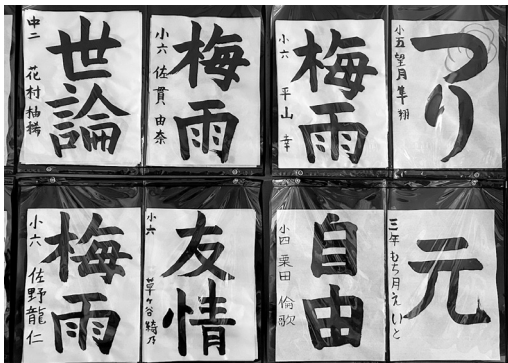 世論
中二 花村柚
梅雨
小六 佐貫由奈
梅雨
小六 平山幸
つり
小五 望月隼翔
梅雨
小六 佐野龍仁
友情
小六 草ヶ谷綺乃
自由
小四 栗田倫歌
元
三年 もち月えいと